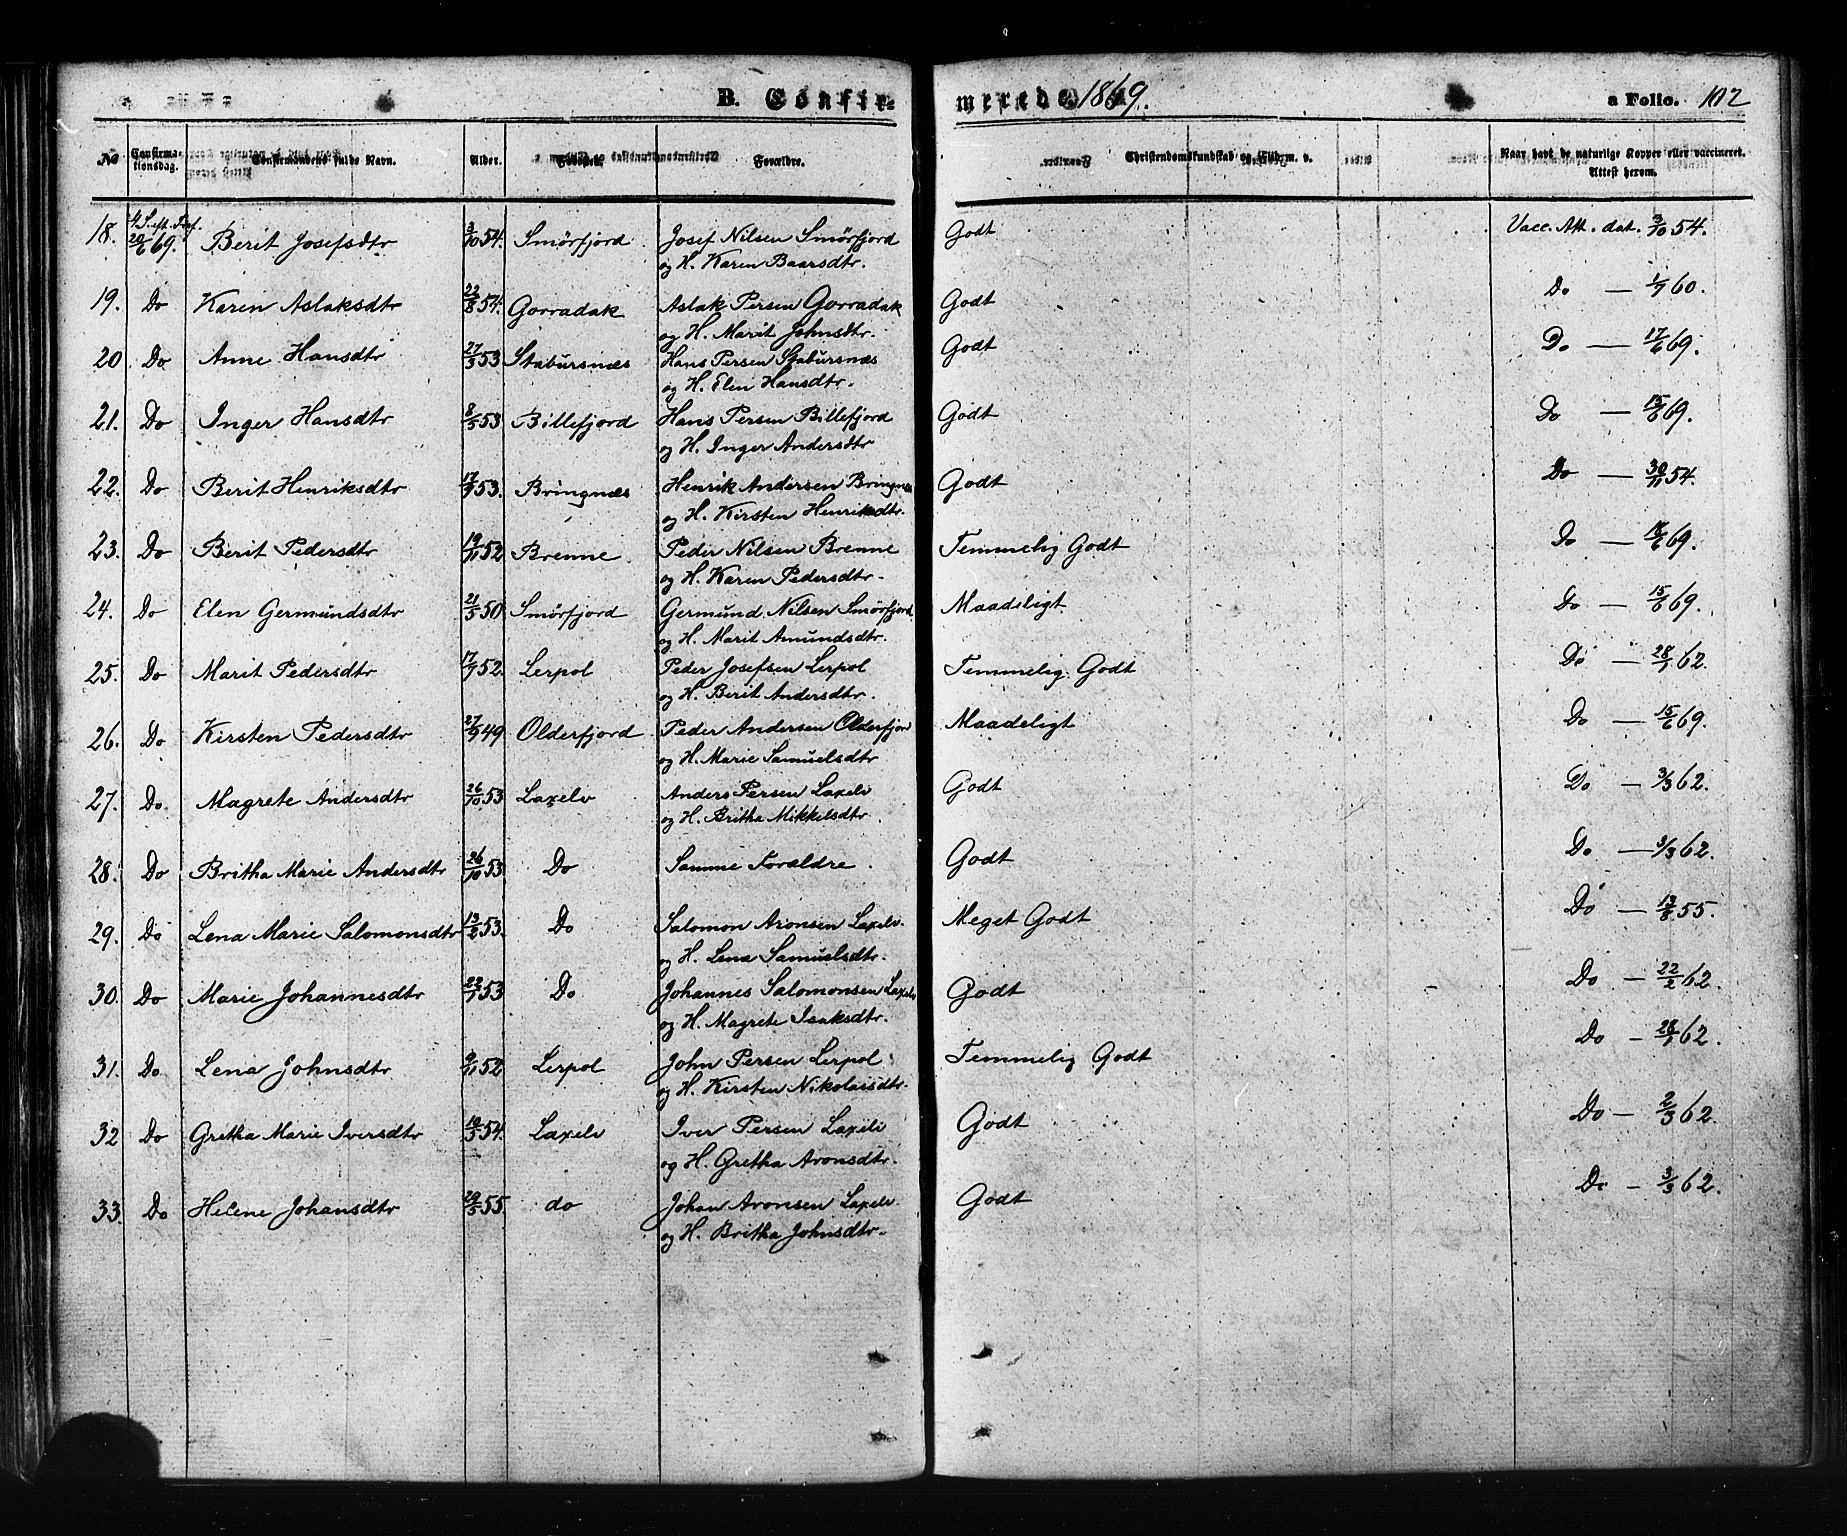 B. Confir-
merede 1869.
a Folio. 102
No
Confirma-
tionsdag.
Confirmandens fulde Navn.
Alder.
Fødested.
Forældre.
Christendomskundskab og Flid m. v.
Naar havt de naturlige Kopper eller vaccineret.
Attest herom.
18. 4 S. eft. Tref. 20/6 69. Berit Josefsdtr 3/10 54. Smörfjord Josef Nilsen Smörfjord Godt Vacc. Att. dat. 3/10 54.
og H. Karen Baarsdtr.
19. Do Karen Aslaksdtr 22/8 54. Gorradak Aslak Persen Gorradak Godt Do — 1/7 60.
og H. Marit Johnsdtr.
20 Do Anne Hansdtr 27/3 53 Stabursnæs Hans Persen Stabursnæs Godt Do — 17/6 69.
og H. Elen Hansdtr.
21. Do Inger Hansdtr 8/5 53 Billefjord Hans Persen Billefjord Godt Do — 15/6 69.
og H. Inger Andersdtr
22. Do Berit Henriksdtr 17/9 53. Bringnæs Henrik Andersen Bringnæs Godt Do — 30/11 54.
og H. Kirsten Henriksdtr.
23. Do Berit Pedersdtr 19/11 52 Brenne Peder Nilsen Brenne Temmelig Godt Do — 69.
og H. Karen Pedersdtr.
24. Do Elen Germundsdtr 21/5 50 Smörfjord Germund Nilsen Smörfjord Maadeligt. Do — 15/6 69.
og H. Marit Amundsdtr.
25. Do Marit Pedersdtr 17/7 52. Lerpol Peder Josefsen Lerpol Temmelig Godt Do — 28/1 62.
og H. Berit Andersdtr.
26. Do Kirsten Pedersdtr 27/9 49 Olderfjord Peder Andersen Olderfjor Maadeligt Do — 15/6 69.
og H. Marie Samuelsdtr
27. Do Magrete Andersdtr 26/10 53 Laxelv Anders Persen Laxelv Godt Do — 3/3 62.
og H. Britha Mikkelsdtr.
28. Do Britha Marie Andersdtr 26/10 53 Do Samme Forældre. Godt Do — 3/3 62.
29. Do Lena Marie Salomonsdtr 53. Do Salomon Aronsen Laxelv. Meget Godt Do — 55.
og H. Lena Samuelsdtr.
30. Do Marie Johannesdtr 22/7 53 Do Johannes Salomonsen Laxelv Godt Do — 22/2 62.
og H. Magrete Isaksdtr.
31. Do Lena Johnsdtr 9/11 52 Lerpol John Persen Lerpol Temmelig Godt Do — 28/1 62.
og H. Kirsten Nikolaisdtr.
32 Do Gretha Marie Iversdtr 54. Laxelv Iver Persen Laxelv Godt Do — 2/3 62.
og H. Gretha Aronsdtr.
33. Do Helene Johansdtr 29/5 55 do Johan Aronsen Laxelv. Godt Do — 3/3 62.
og H. Britha Johnsdtr.